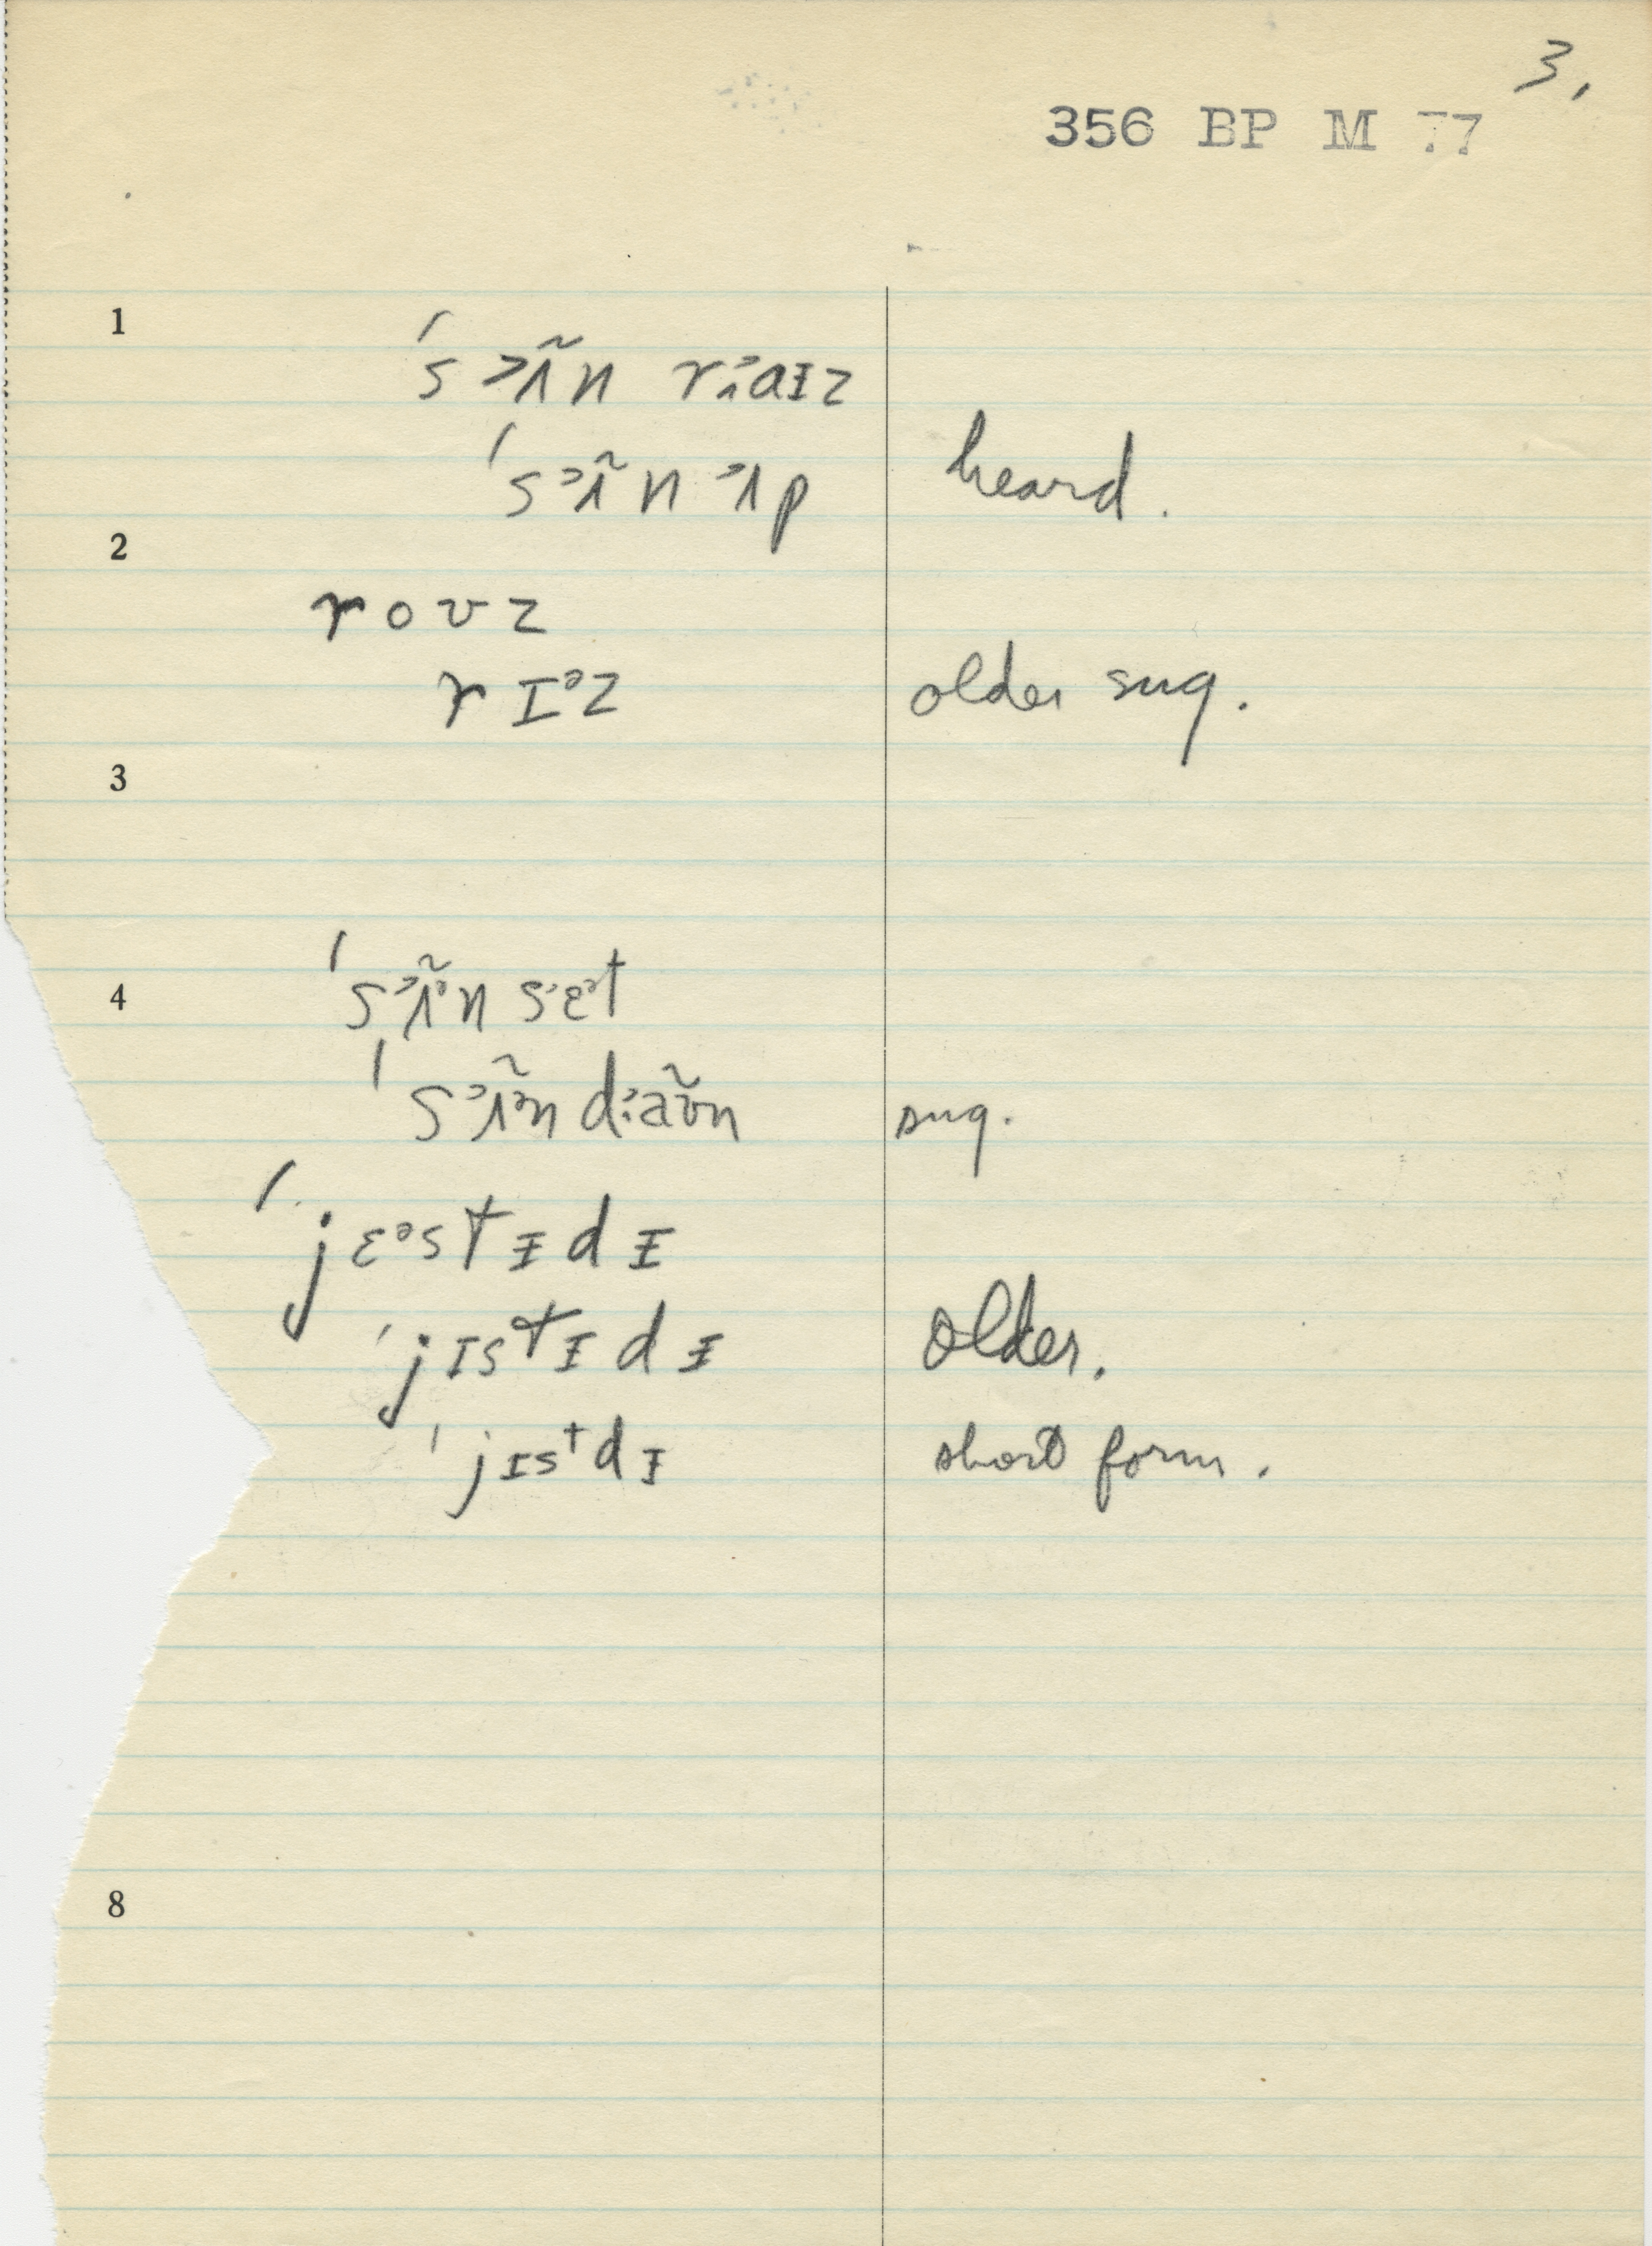 3.
356 BP M 77
1
ˈs˃ʌ̃n r˄aɪz
ˈs˃ʌ̃n ˃ʌp heard.
2
r o ʊ z
r ɪᵊz older sug.
3
4
ˈs˃ʌ̃ᵊn sɛᵊt
ˈs˃ʌ̃ᵊn d˃aʊ̃n sug.
ˈjɛᵊstɨdɨ
ˈjɪstɨdɨ older.
ˈjɪstdɨ short form.
8